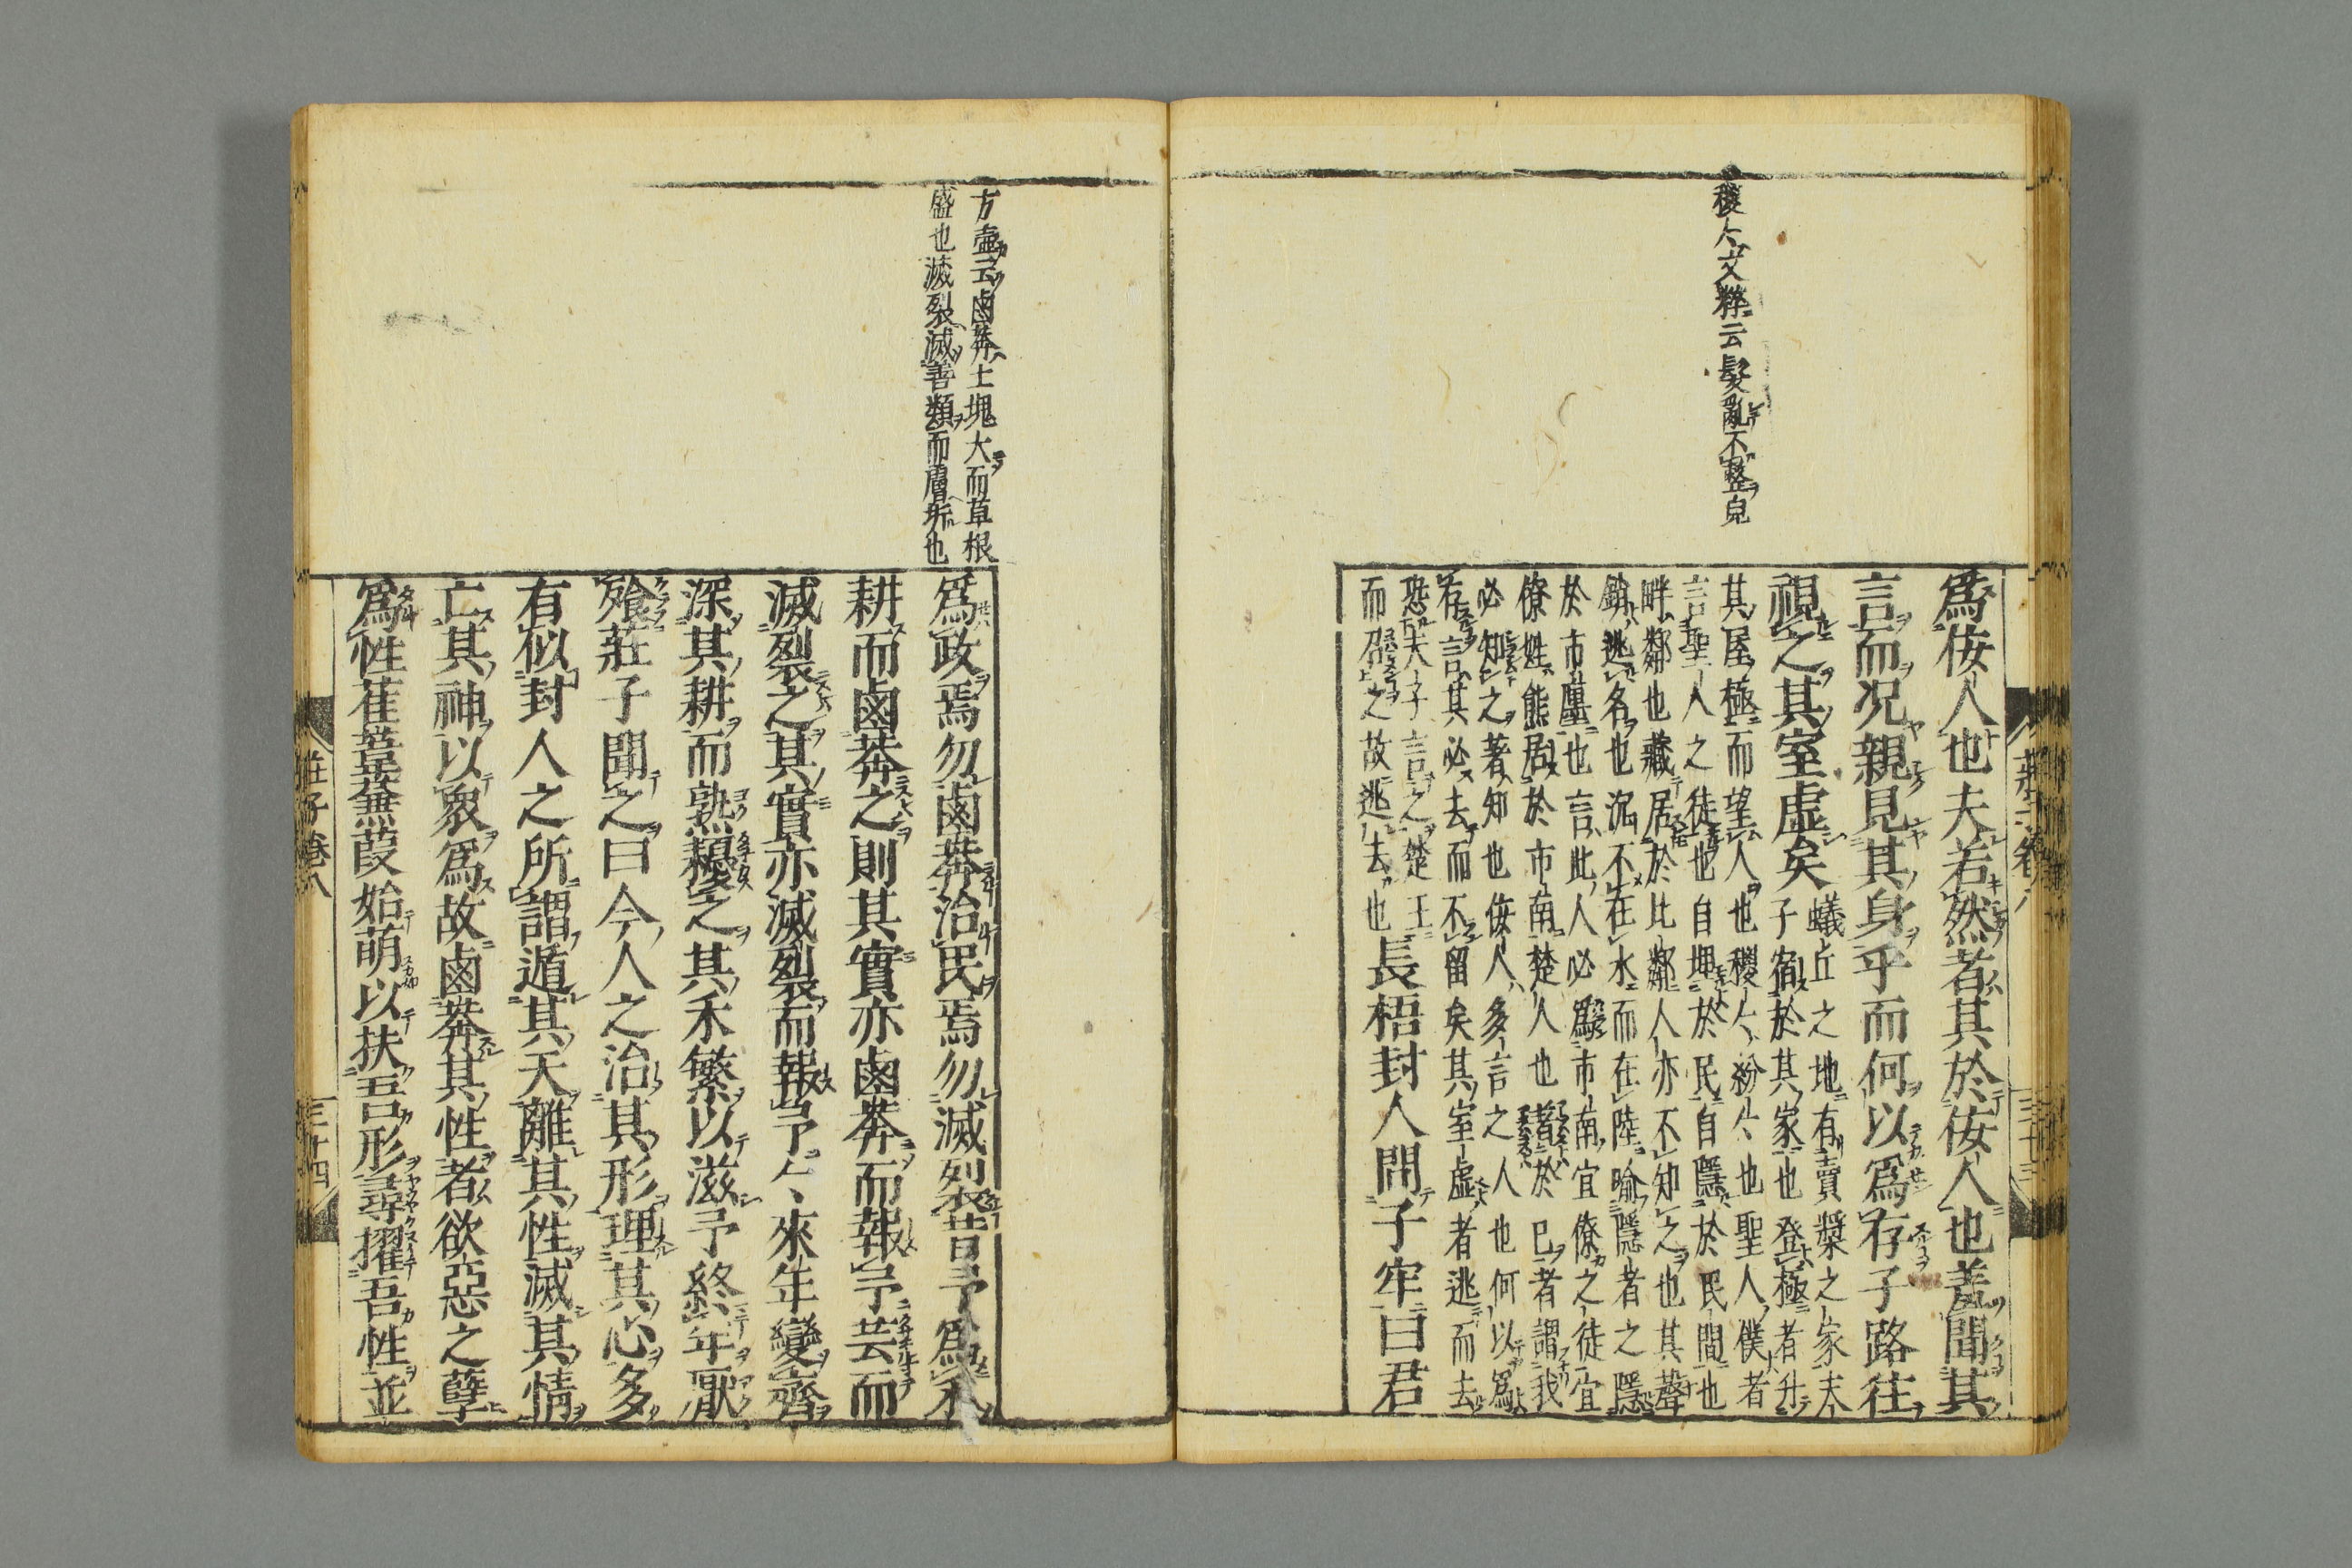 稷〻文粹云髮亂不整皃
爲佞人也夫若然者其於佞人也羞聞其
言而况親見其身乎而何以爲存子路往
視之其室虛矣
蟻丘之地有賣漿之家夫
子宿於其家也登極者升
其屋極而望人也稷〻紛〻也聖人僕者
言聖人之徒也自埋於民自隱於民間也
畔鄰也藏居於比鄰人亦不知之也其聲
銷逃名也沉不在水而在陸喻隱者之隱
於市廛也言此人必爲市南宜僚之徒宜
僚姓熊居於市南楚人也著於巳者謂我
必知之著知也佞人多言之人也何以爲
存言其必去而不留矣其室虛者逃而去
恐夫子言之楚王
而召之故逃去也
長梧封人問子牢曰君
方壺云鹵莽土塊大而草根
盛也滅裂滅善類而膚坼也
爲政焉勿鹵莽治民焉勿滅裂昔予爲禾
耕而鹵莽之則其實亦鹵莽而報予芸而
滅裂之其實亦滅裂而報予〻來年變齊
深其耕而熟耰之其禾繁以滋予終年厭
飱莊子聞之曰今人之治其形理其心多
有似封人之所謂遁其天離其性滅其情
亡其神以衆爲故鹵莽其性者欲惡之孽
爲性萑葦蒹葭始萌以扶吾形尋擢吾性並
莊子卷八
三十四